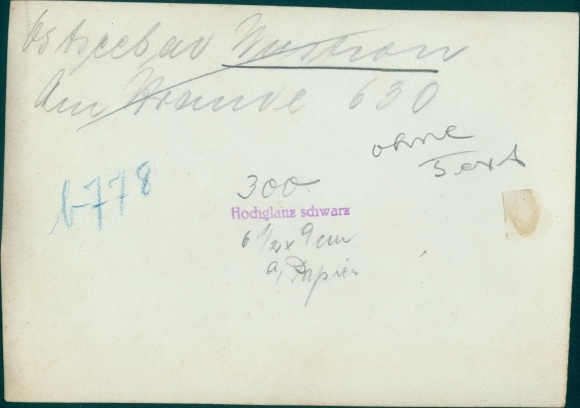 Ostseebad Wustrow
Am Strande 630
ohne
Text
b-778
300
Hochglanz schwarz
6 1/2 x 9 cm
a, Papier